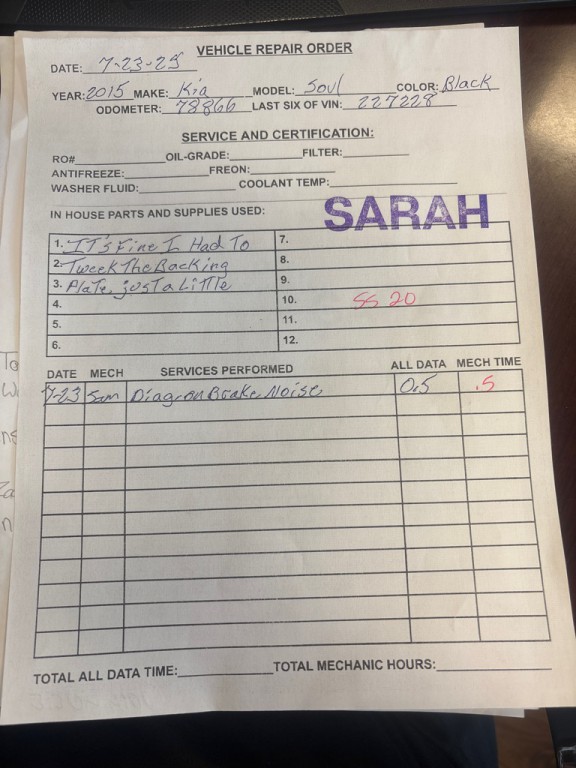 VEHICLE REPAIR ORDER
DATE: 7-23-25
YEAR: 2015 MAKE: Kia MODEL: Soul COLOR: Black
ODOMETER: 78866 LAST SIX OF VIN: 227228
SERVICE AND CERTIFICATION:
RO# OIL-GRADE: FILTER:
ANTIFREEZE: FREON:
WASHER FLUID: COOLANT TEMP:
IN HOUSE PARTS AND SUPPLIES USED: SARAH
1. IT's Fine I Had To 7.
2. Tweek The Backing 8.
3. Plate, jusT a LiTTle 9.
4. 10. SS 20
5. 11.
6. 12.
DATE MECH SERVICES PERFORMED ALL DATA MECH TIME
7-23 Sam Diag on Brake Noise 0.5 .5
TOTAL ALL DATA TIME: TOTAL MECHANIC HOURS: